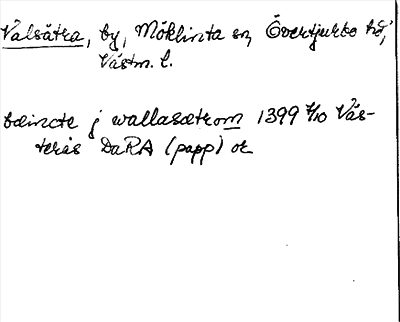 Valsätra, by, Möklinta sn, Övertjurbo hd,
Västm. l.
bæincte j wallasætrom 1399 4/10 Väs-
terås DaRA (papp) or